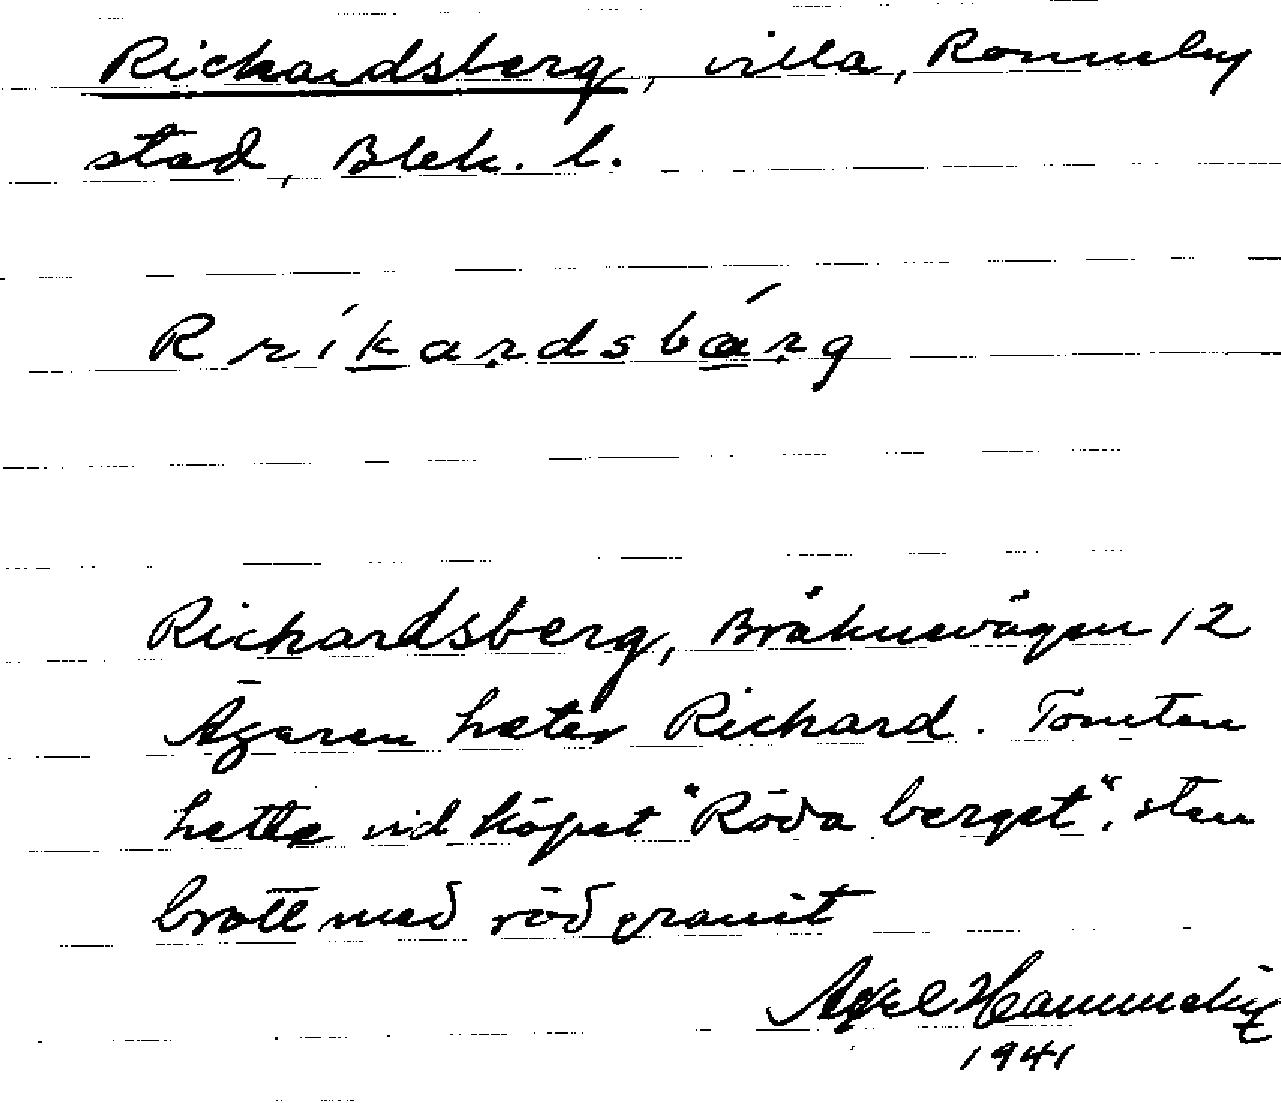 Richardsberg, villa, Ronneby
stad, Blek. l.
R ríkardsbǽrg
Richardsberg, Bräknevägen 12
Ägaren heter Richard. Tomten
hette vid köpet "Röda berget", sten
brott med röd granit
Axel
1941